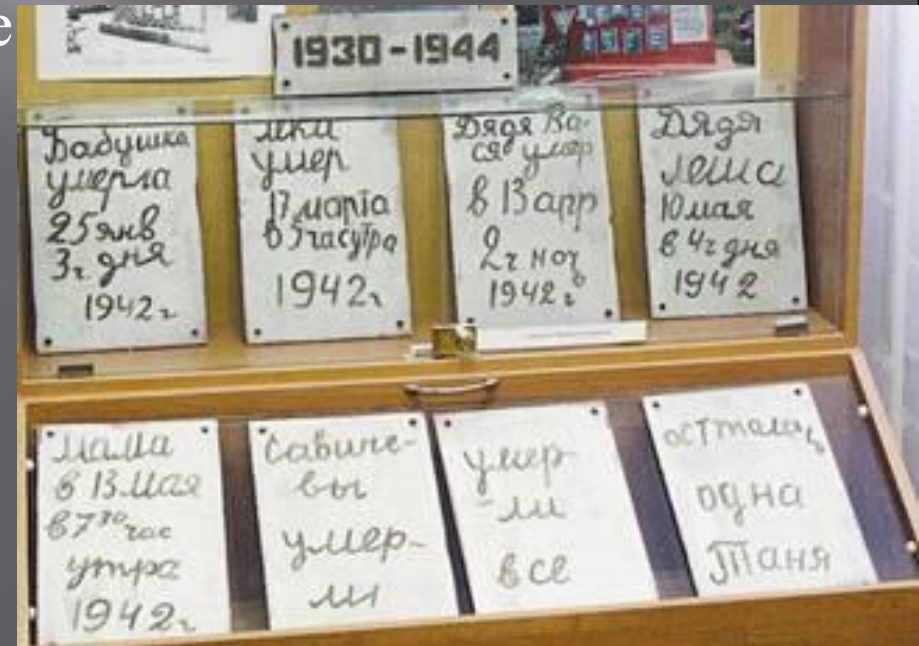 е
1930-1944
Бабушка
умерла
25 янв
3ч. дня
1942г
лека
умер
17 марта
в 5 час утра
1942г
Дядя Ва-
ся умер
в 13 апр
2ч ноч
1942г
Дядя
Леша
10 мая
в 4ч дня
1942
Мама
в 13 мая
в 7 30 час
утра
1942г
Савиче-
вы
умер-
ли
умер-
ли
все
осталась
одна
Таня